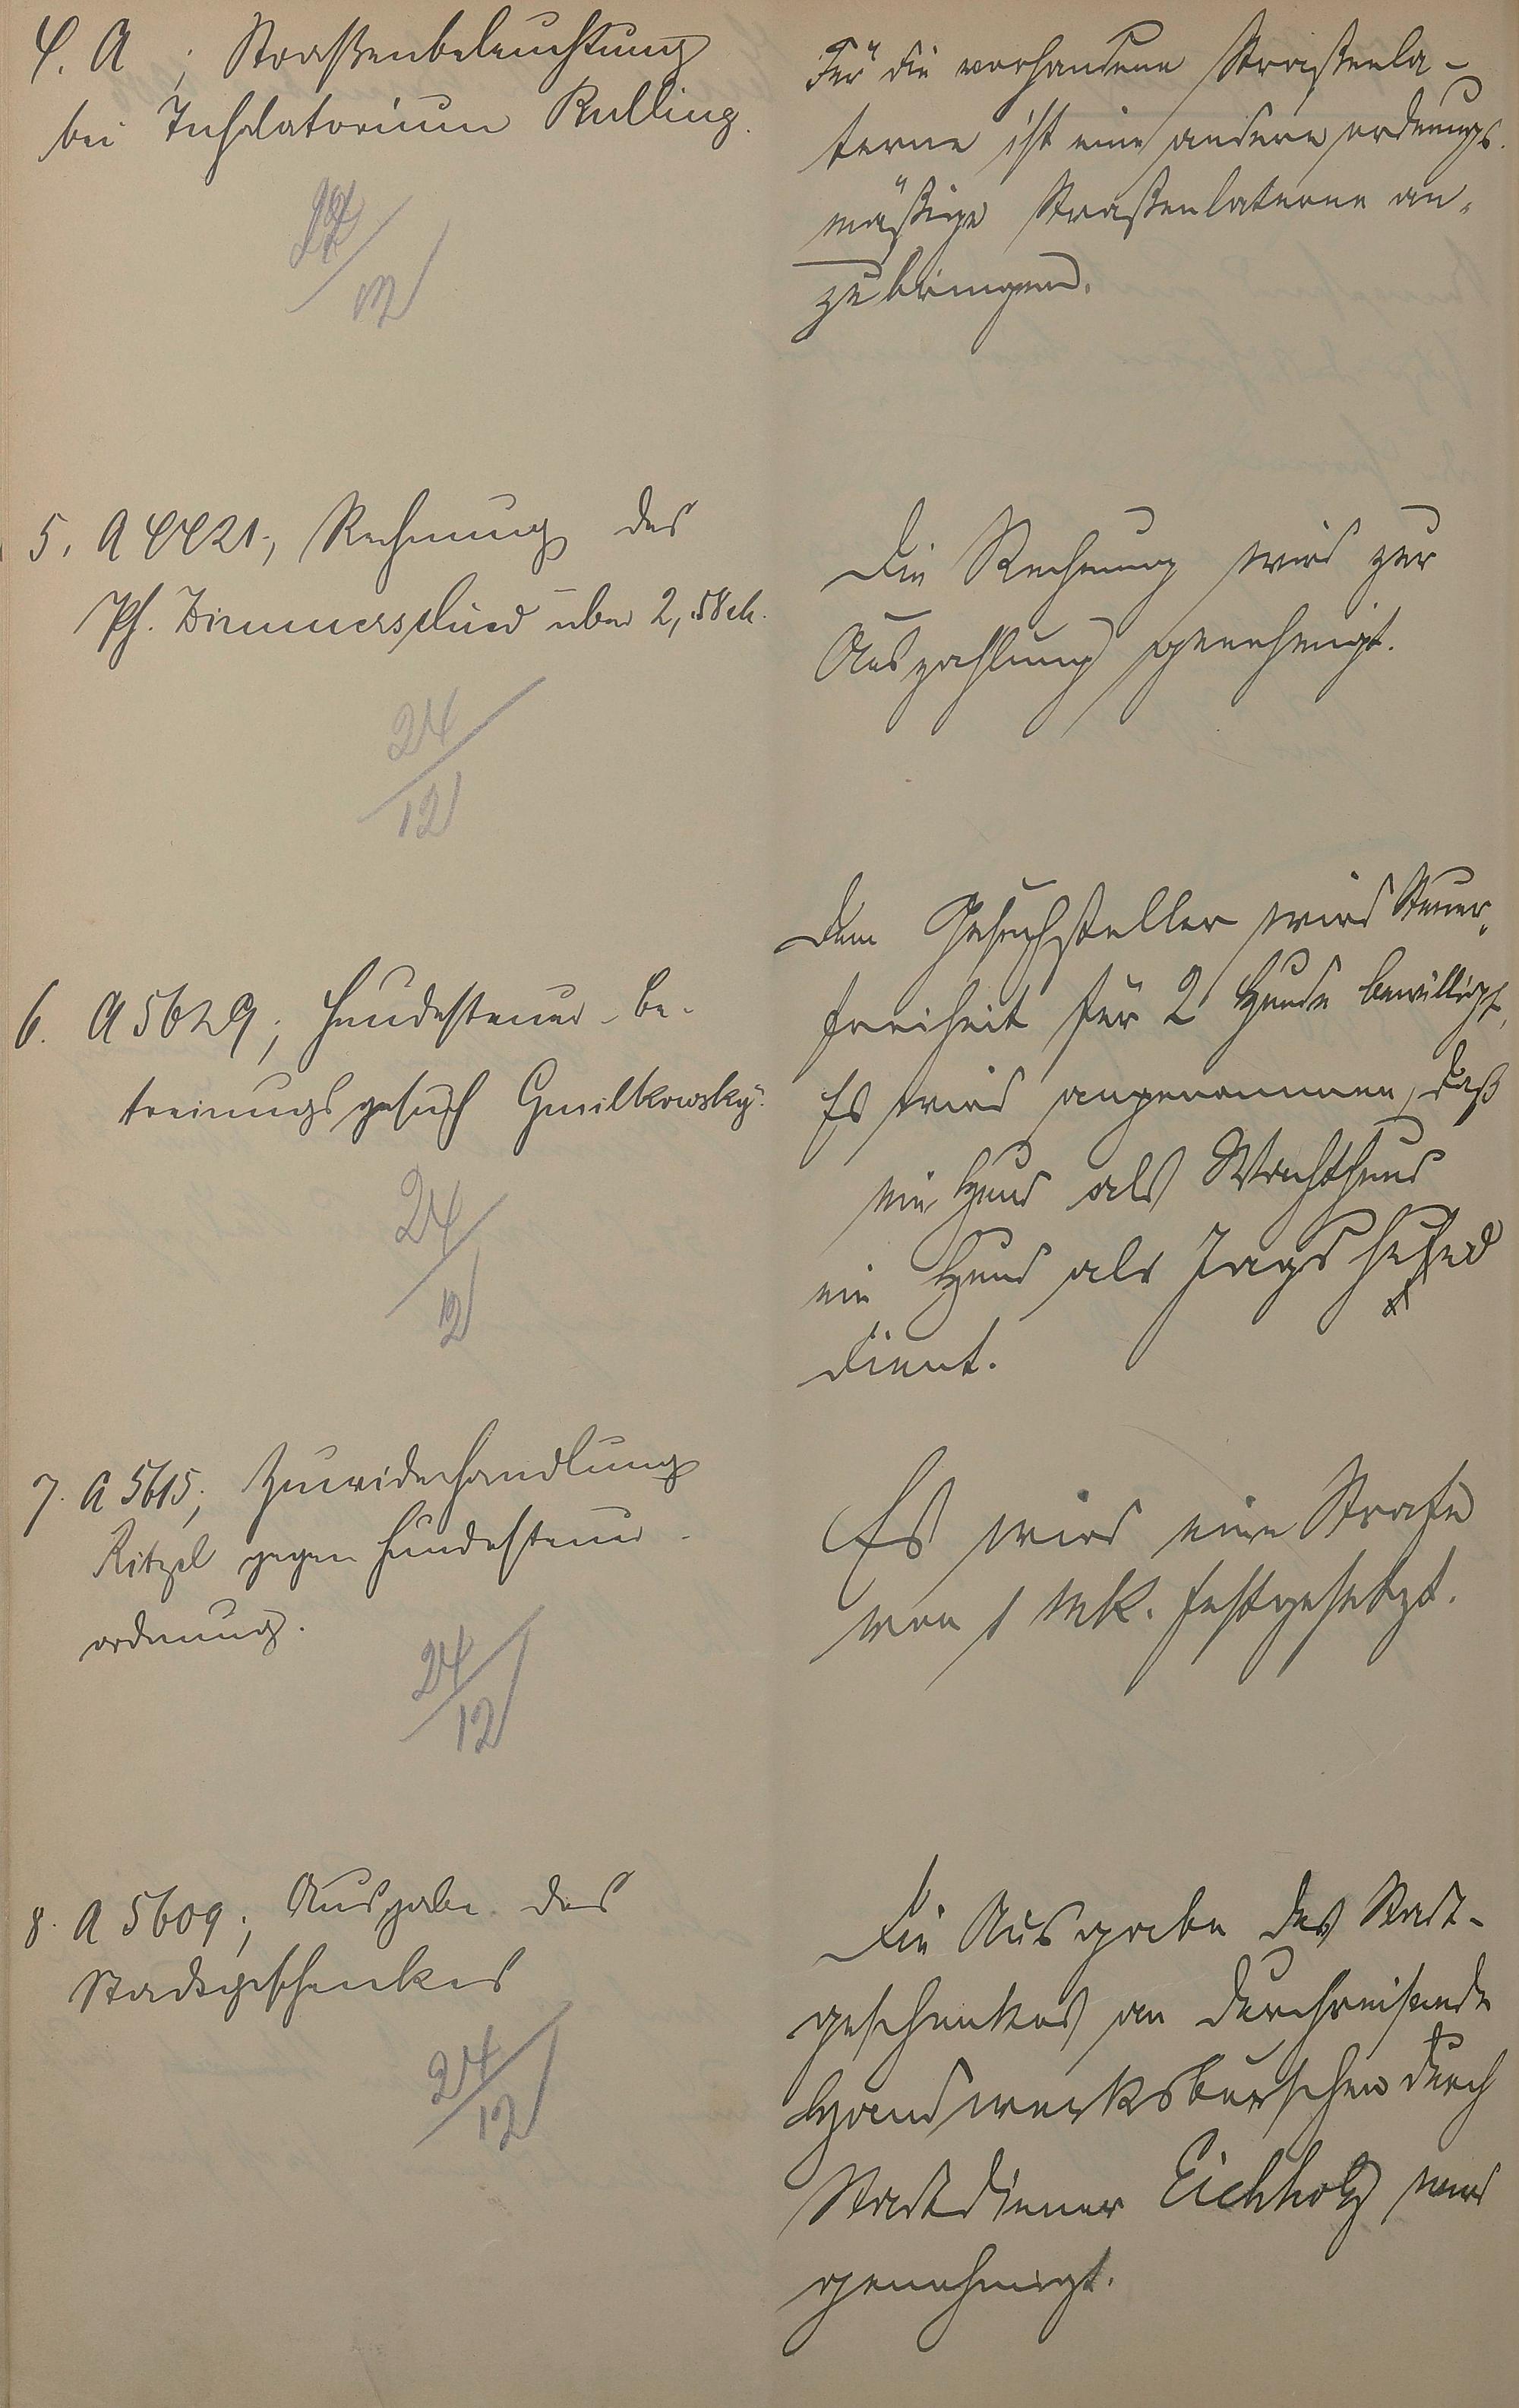 4. A ; Straßenbeleuchtung
bei Inhalatorium Rulling.
24/12
Für die vorhandene Straßenla-
terne ist eine andere ordnungs-
mäßige Straßenlaterne an-
zubringen.
5. A 4421; Rechnung des
Ph. Dimmerschied über 2,58 M.
24/12
Die Rechnung wird zur
Auszahlung genehmigt.
6. A 5629; Hundesteuer-Be-
freiungsgesuch Gmilkowsky.
24/12
Dem Gesuchsteller wird Steuer-
freiheit für 2 Hunde bewilligt,
Es wird angenommen, daß
ein Hund als Wachthund
ein Hund als Jagdhund
dient.
7. A 5615; Zuwiderhandlung
Ritzel gegen Hundesteuer-
ordnung.
24/12
Es wird eine Strafe
von 1 Mk. festgesetzt.
8. A 5609; Ausgabe des
Stadtgeschenkes
24/12
Die Ausgabe des Stadt-
geschenkes an durchreisende
Handwerksburschen durch
Stadtdiener Eichholz wird
genehmigt.